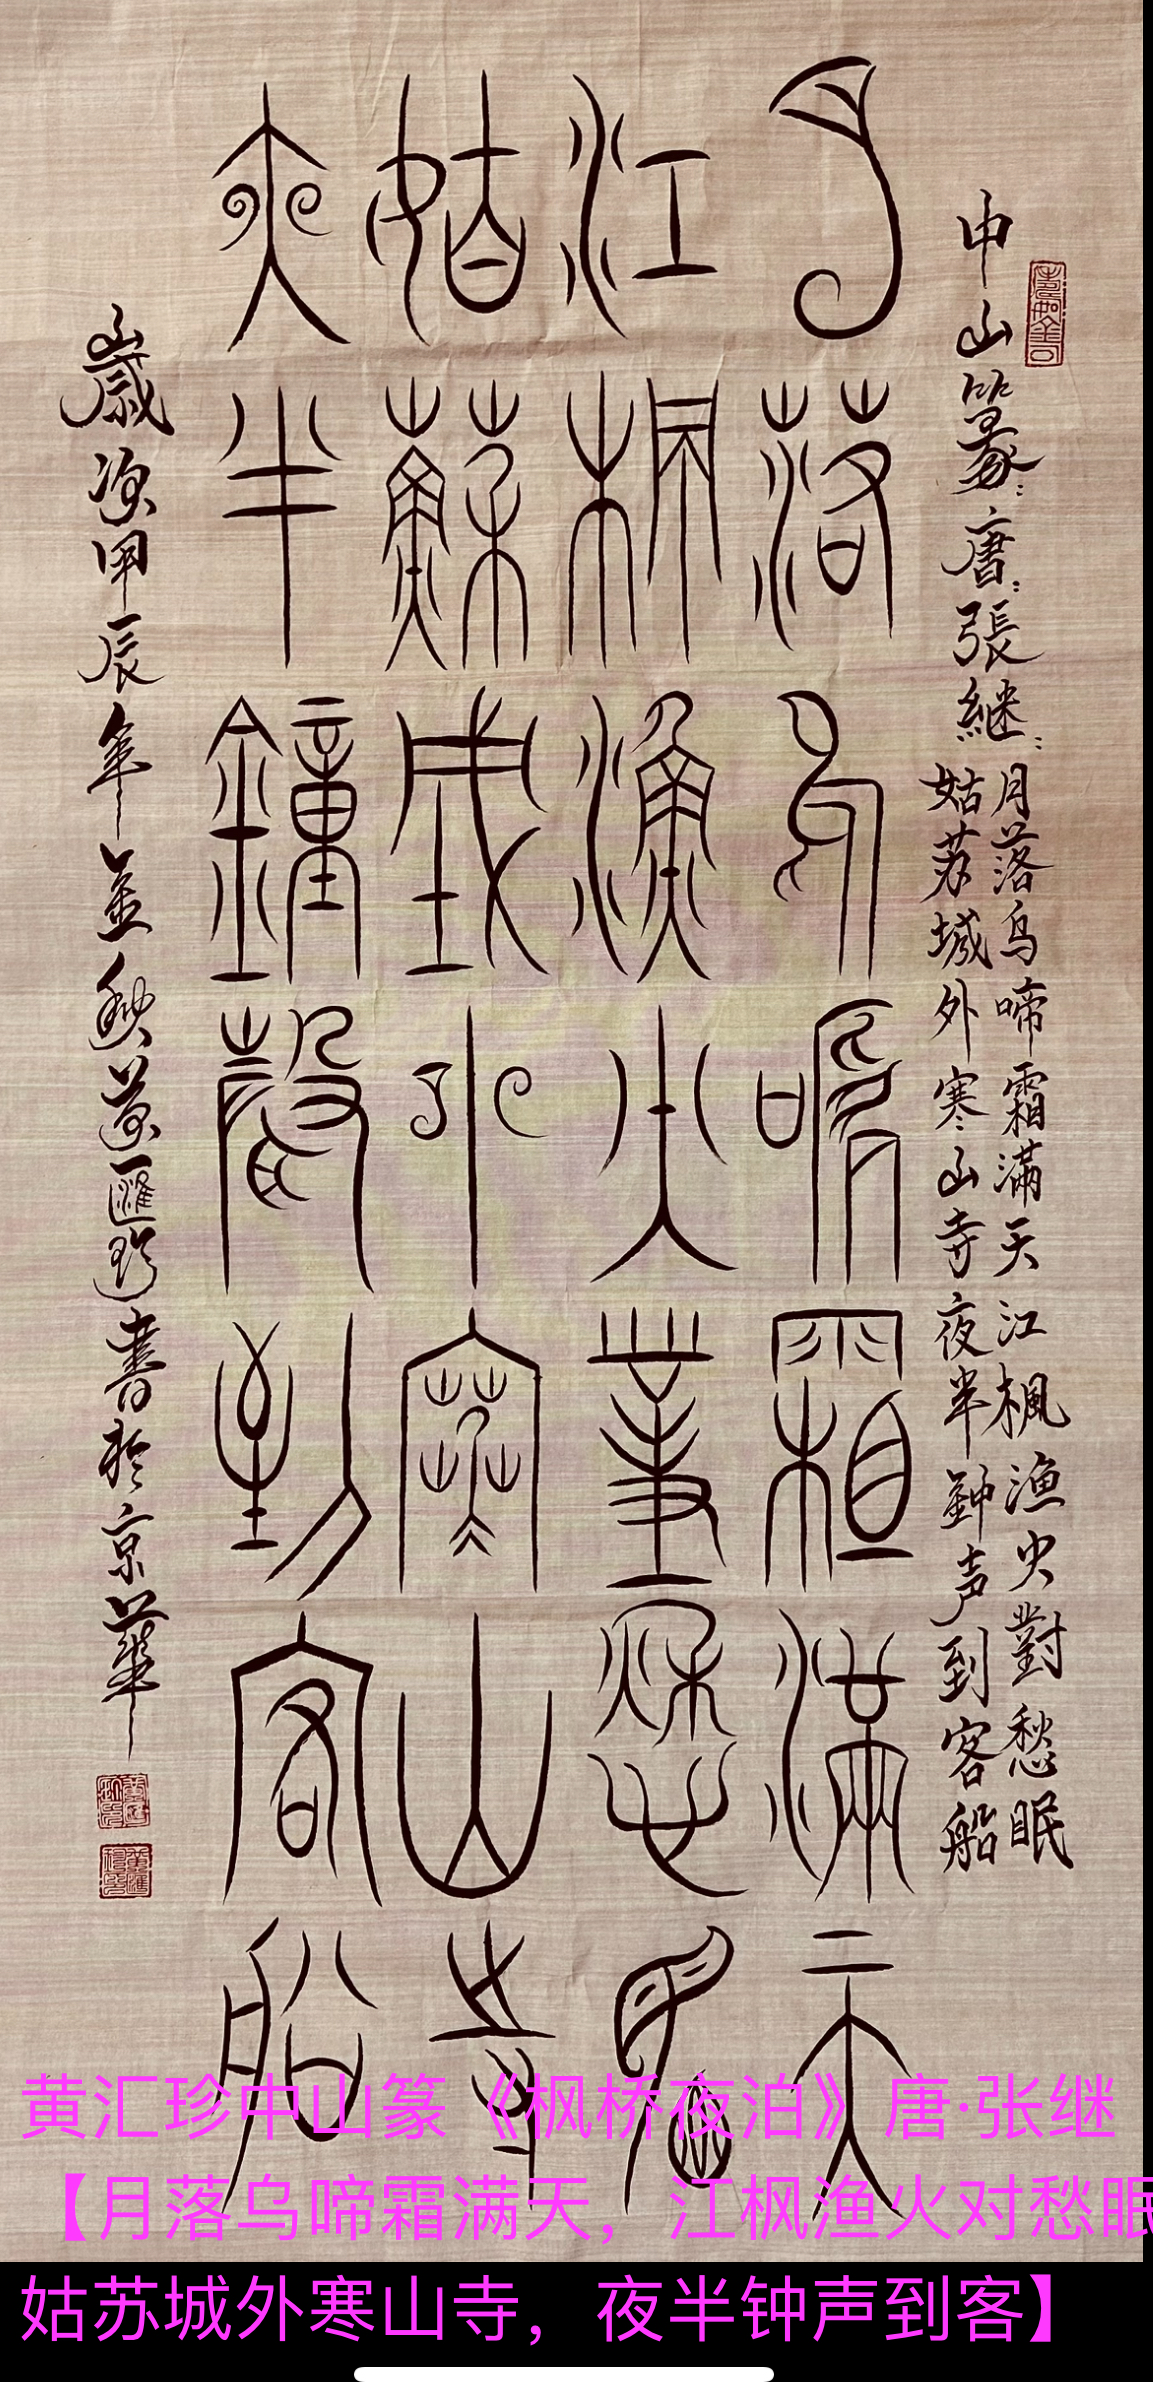 中山篆：唐：張継：
月落乌啼霜滿天江楓漁火對愁眠
姑苏城外寒山寺夜半鈡声到客船
月落烏嗁霜滿天
江楓漁火對愁眠
姑蘇城外寒山寺
夜半鐘聲到客船
歲次甲辰年金秋黄匯珍書於京華
黄汇珍中山篆《枫桥夜泊》唐·张继
【月落乌啼霜满天，江枫渔火对愁眠
姑苏城外寒山寺，夜半钟声到客】